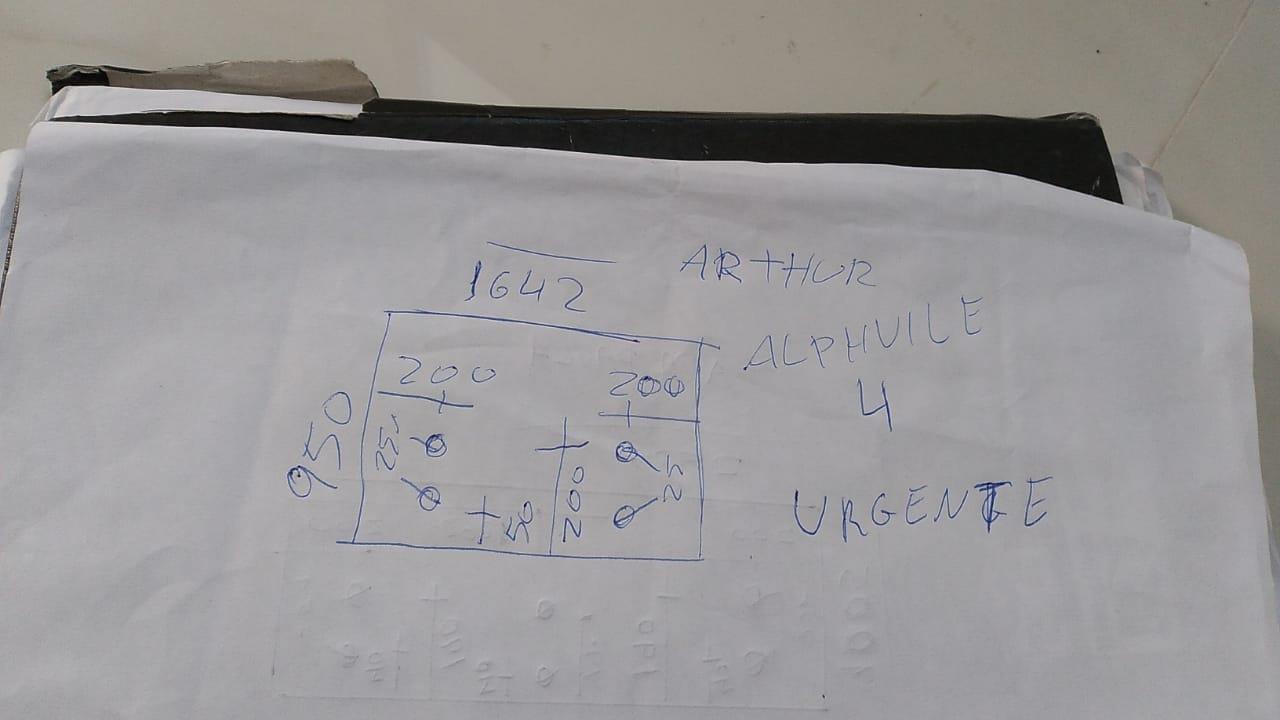 1642
ARTHUR
ALPHVILE
4
950
200
200
25
200
25
50
URGENTE